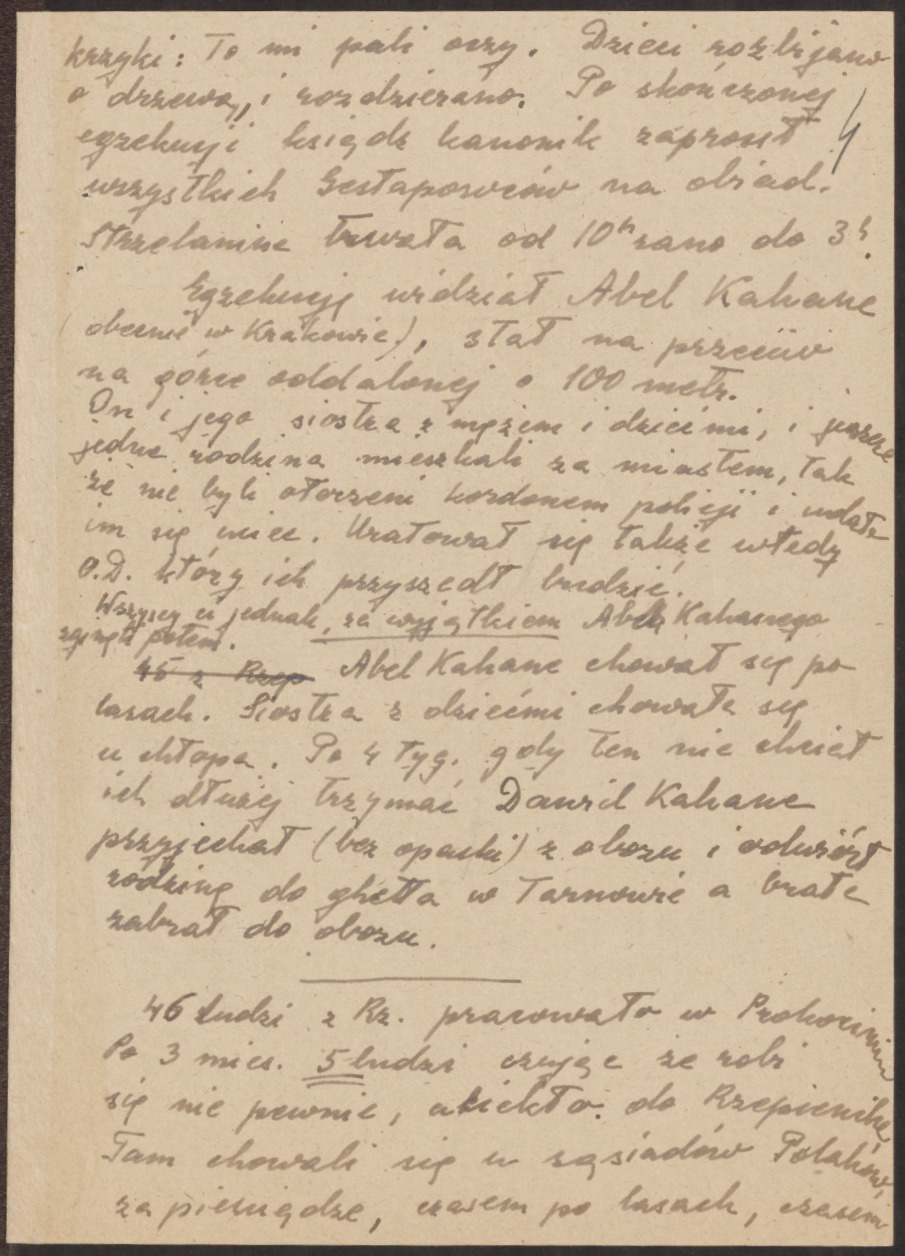 krzyki: To mi pali oczy. Dzieci rozbijano
o drzewa, i rozdzierano. Po skończonej
4
egzekucji ksiądz kanonik zaprosił
wszystkich Gestapowców na obiad.
Strzelanina trwała od 10h rano do 3h.
Egzekucję widział Abel Kahane
(obecnie w Krakowie), stał na przeciw
na górce oddalonej o 100 metr.
On i jego siostra z mężem i dziećmi, i jeszcze
jedna rodzina mieszkali za miastem, tak
że nie byli otoczeni kordonem policji i udało
im się uciec. Uratował się także wtedy
O.D. który ich przyszedł budzić.
Wszyscy ci jednak, za wyjątkiem Abla Kahanego
zginęli potem.
45 z Rzep Abel Kahane chował się po
lasach. Siostra z dziećmi chowała się
u chłopa. Po 4 tyg. gdy ten nie chciał
ich dłużej trzymać Dawid Kahane
przyjechał (bez opaski) z obozu i odwiózł
rodzinę do ghetta w Tarnowie a brata
zabrał do obozu.
46 ludzi z Rz. pracowało w Prokocimiu
Po 3 mies. 5 ludzi czując że robi
się nie pewnie, uciekło do Rzepiennika
Tam chowali się u sąsiadów Polaków,
za pieniądze, czasem po lasach, czasem